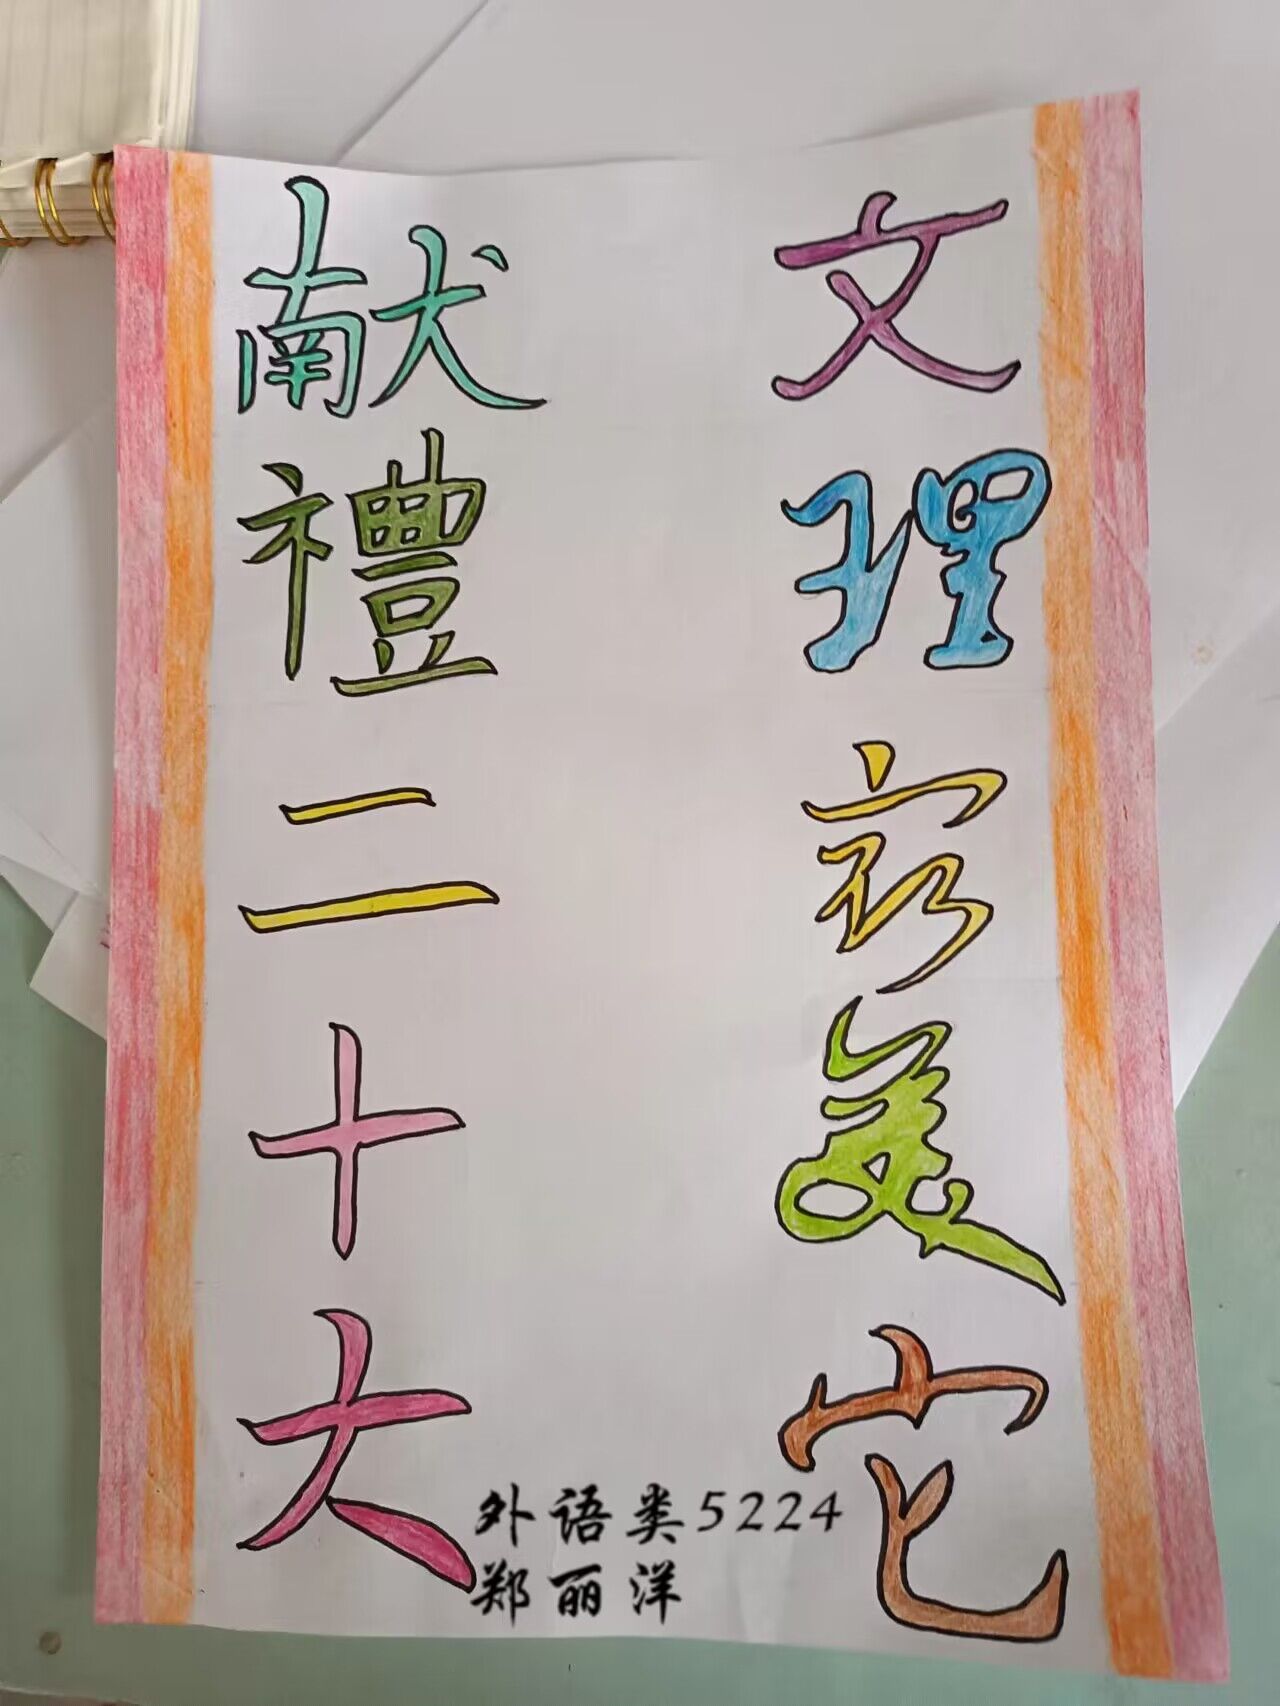 文理家美它
献禮二十大
外语类5224
郑丽洋